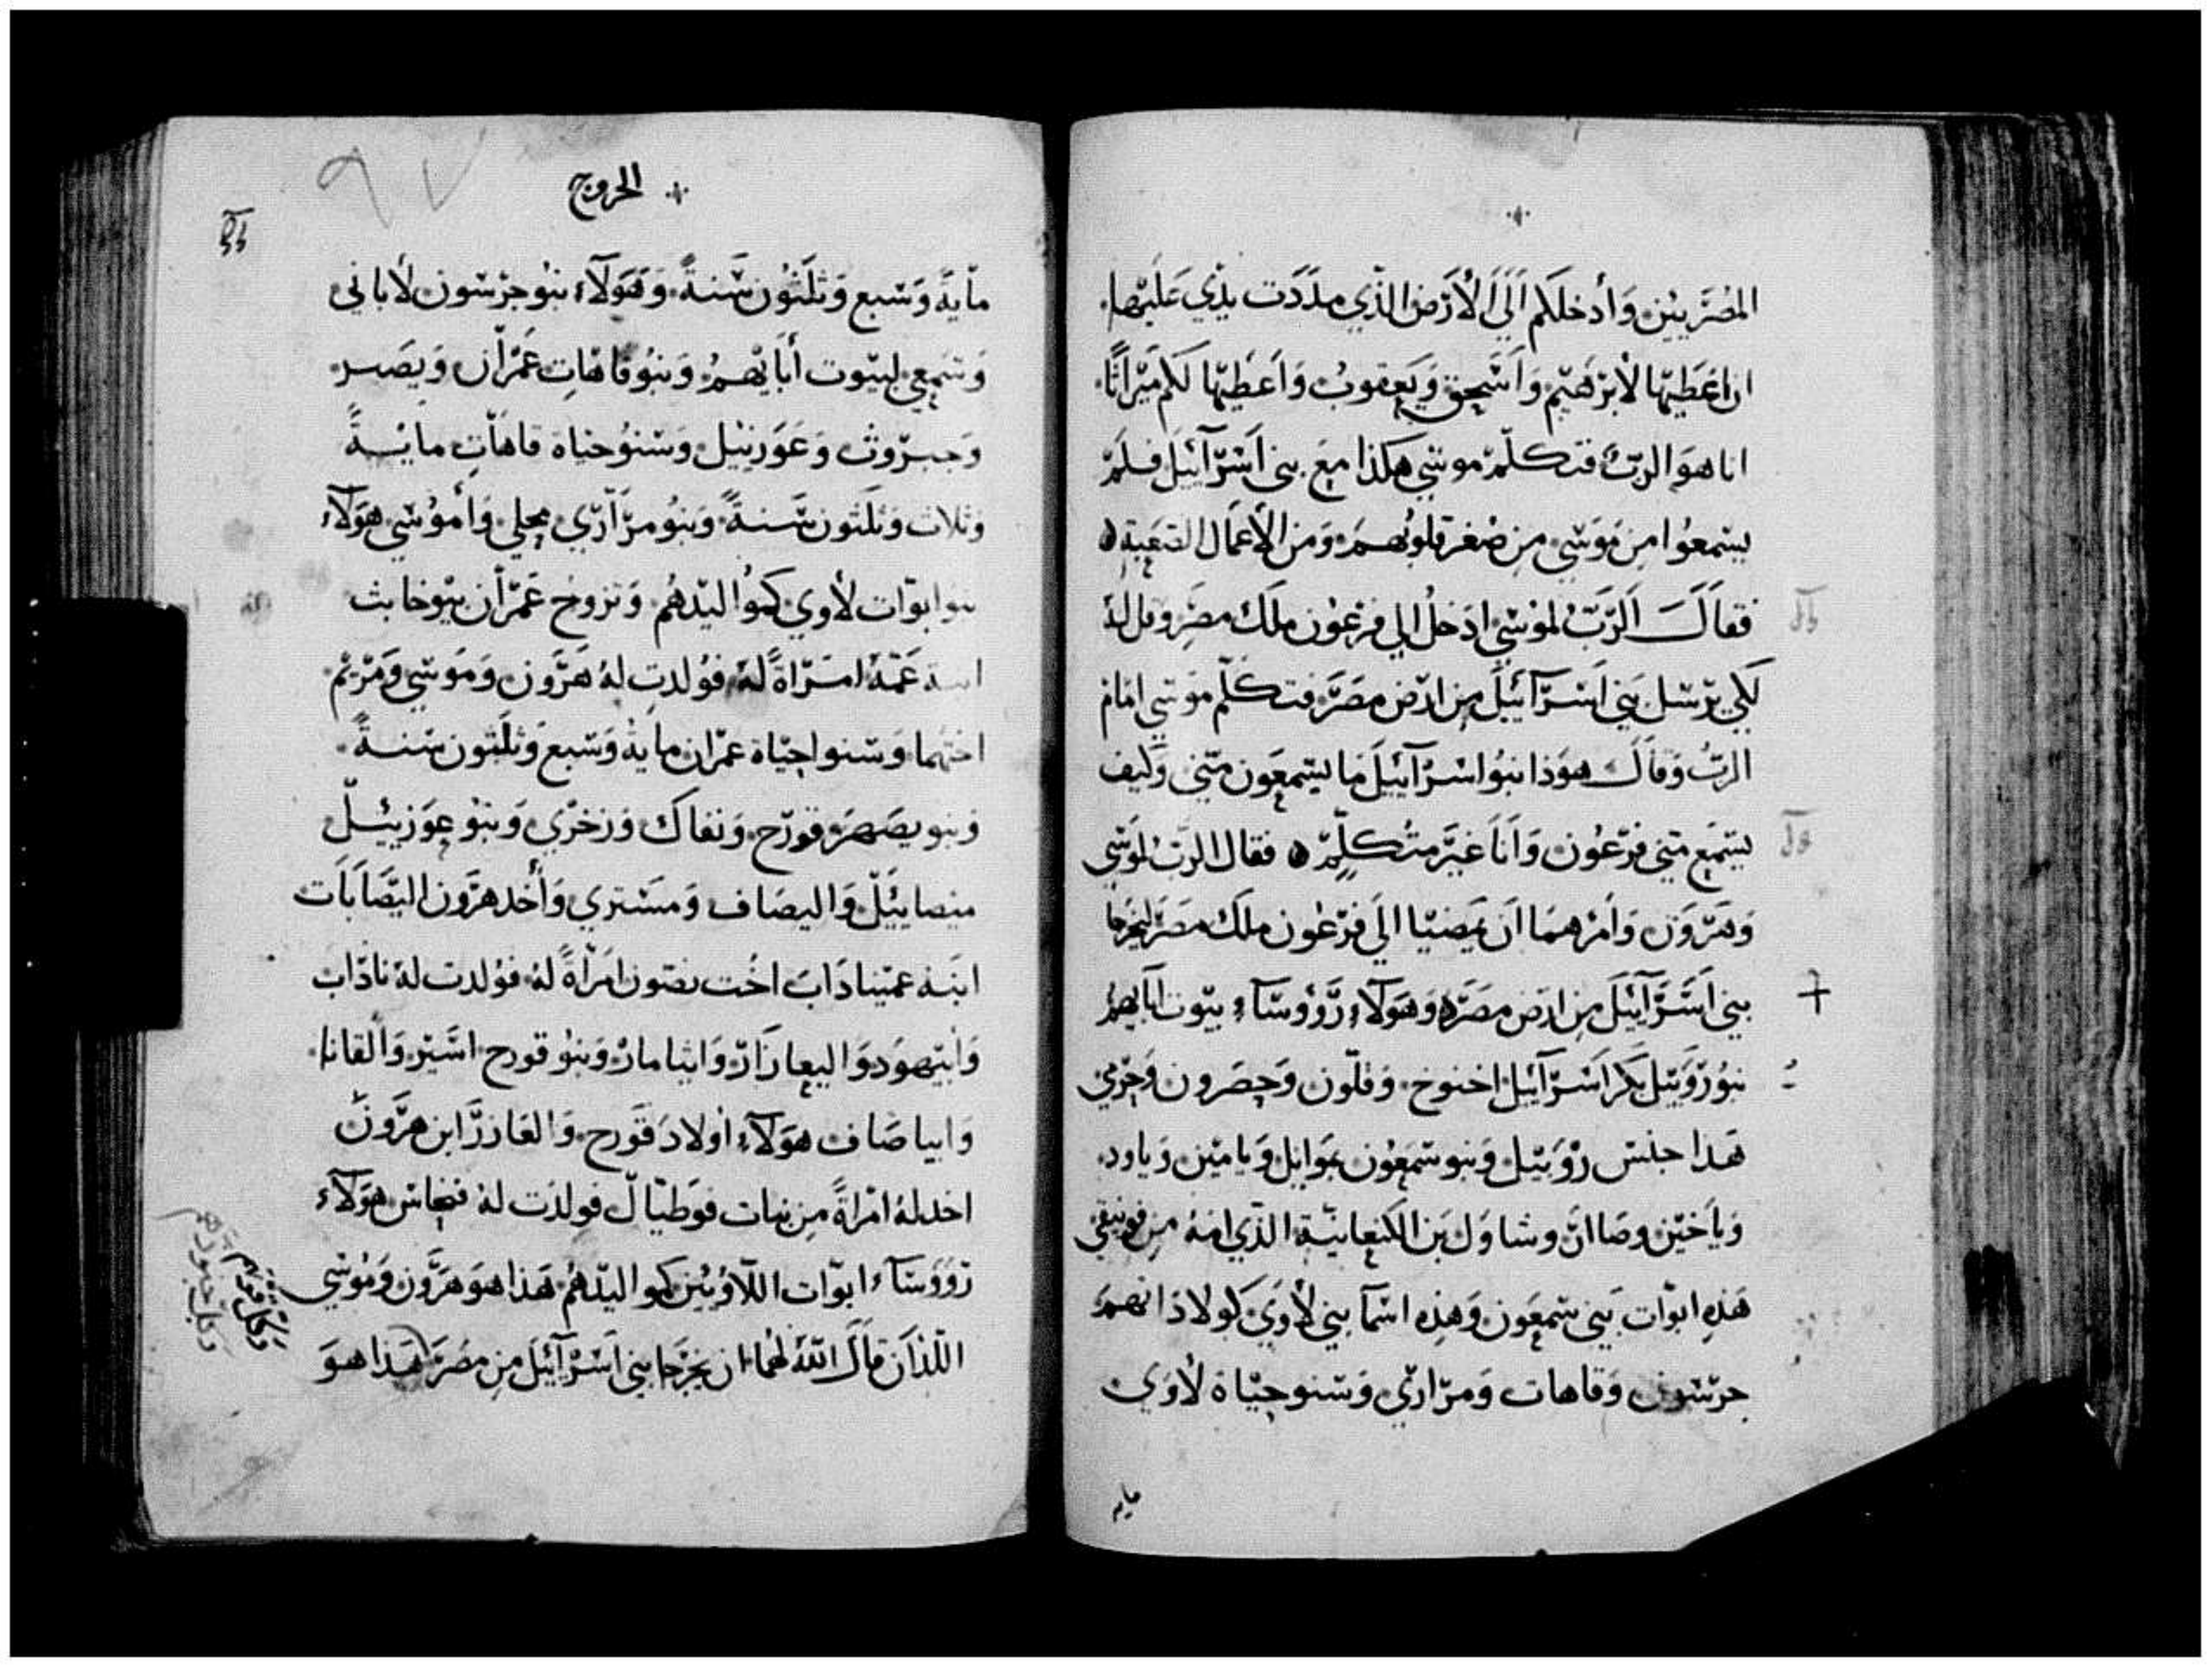 المصريين وأدخلكم الي الأرض الذي مددت يدي عليها
ان اعطيها لابرهيم واسحق ويعقوب واعطيها لكم ميراثا
انا هو الرب فتكلم موسي هكذا مع بني اسرآئيل فلم
يسمعوا من موسي من صغر قلوبهم ومن الأعمال الصعبة
فقال الرب لموسي ادخل الي فرعون ملك مصر وقل له
لكي يرسل بني اسرآئيل من ارض مصر فتكلم موسي امام
الرب وقال هوذا بنوا اسرآئيل ما يسمعون مني وكيف
يستمع مني فرعون وانا غير متكلم فقال الرب لموسي
وهرون وامرهما ان يمضيا الي فرعون ملك مصر ليخرجا
بني اسرآئيل من ارض مصر وهولآء روؤسآء بيوت ابآيهم
بنو روبيل بكر اسرآئيل اخنوخ وفلون وحصرون وجرمي
هذا جنس روبيل وبنو شمعون يموايل ويامين وياود
وياخين وصاان وشاول بن الكنعانية الذي من فونيقي
هذه ابوات بني شمعون وهذه اسمآ بني لأوي كولادانهم
جرشون وقاهات ومراري وسنو حياة لأوي
مايه
الخروج
٩٧
مأية وسبع وثلثون سنة وهولآء بنو جرشون لأباني
وشمعي لبيوت أبايهم وبنو قاهات عمران ويصهر
وحبرون وعوزييل وسنو حياة قاهات مايــة
وثلاث وثلثون سنة وبنو مرآري محلي وأموشي هولآء
بنو ابوات لأوي كموا ليدهم وتزوج عمران يوخابث
ابنة عمه امراة له فولدت له هرون وموسي ومريم
اختهما وسنوا حياة عمران ماية وسبع وثلثون سنة
وبنو يصهر قورح ونفاك وزخري وبنو عوزييل
ميصاييل واليصاف ومستري وأخد هرون اليصابات
ابنة عميناداب اخت نصون امراة له فولدت له ناداب
وأبيهود واليعازار وايثامار وبنو قورح اسير والقانا
وابياصاف هولآء اولاد قورح والعازر ابن هرون
اخد له امراة من بنات فوطيال فولدت له فنحاس هولآء
روؤسآء ابوات اللاويين كمواليدهم هذا هو هرون وموسي
اللذان قال الله لهما ان يخرجا بني اسرآئيل من مصر هذا هو